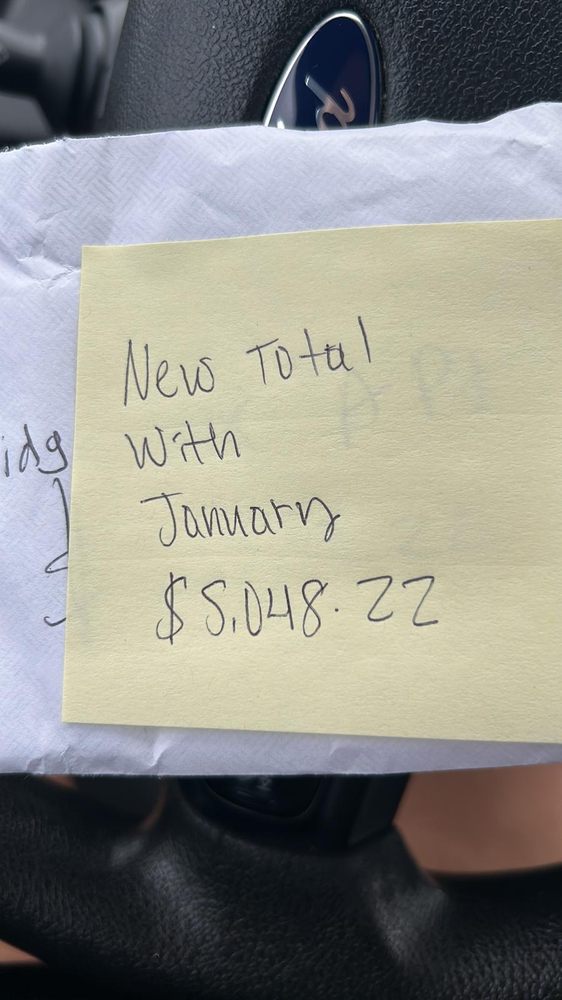 New Total
With
January
$5,048.22